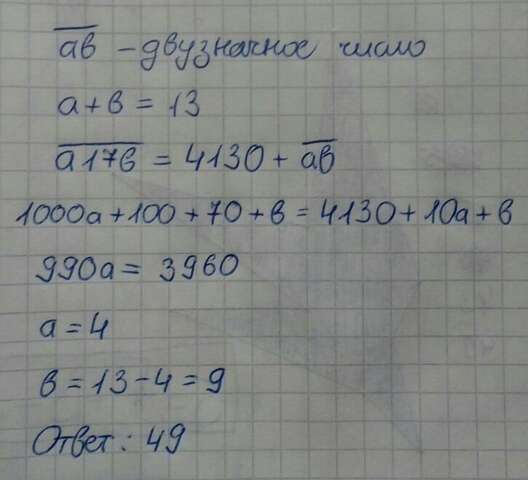 ав - двузначное число
а + в = 13
а17в = 4130 + ав
1000а + 100 + 70 + в = 4130 + 10а + в
990а = 3960
а = 4
в = 13 - 4 = 9
Ответ: 49